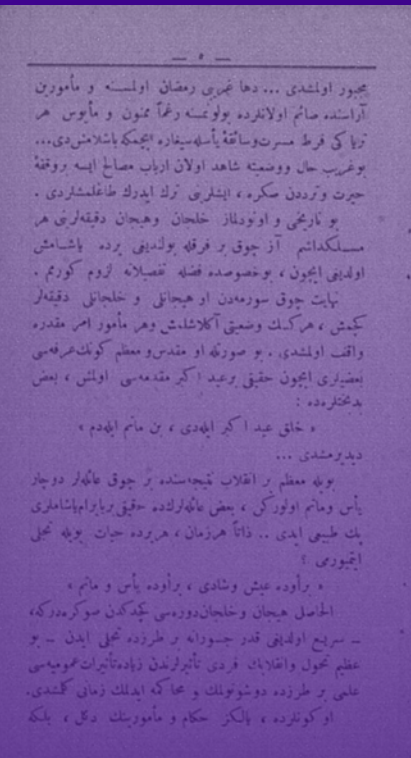 — ٥ —
مجبور اولمشدی ... دها غریبی رمضان اولمسنه و مأمورین
آراسنده صائم اولانلرده بولونمسنه رغماً ممنون و مأیوس هر
تریاکی فرط مسرت وسائقهٔ یأسله سیغاره ایچمکه باشلامش دی...
بوغریب حال ووضعیته شاهد اولان ارباب مصالح ایسه بروقفهٔ
حیرت وترددن صکره ، ایشلرینی ترك ایدرك طاغلمشلردی .
بو تاریخی و اونودلماز خلجان وهیجان دقیقه‌لرینی هر
مسلکداشم آز چوق بر فرقله بولندیغی یرده یاشامش
اولدیغی ایچون ، بوخصوصده فضله تفصیلاته لزوم کورمم .
نهایت چوق سورمه‌دن او هیجانلی و خلجانلی دقیقه‌لر
کچمش ، هرکسك وضعیتی آکلاشلمش وهر مأمور امر مقدره
واقف اولمشدی . بو صورتله او مقدس و معظم کونك عرفه‌سی
بعضیلری ایچون حقیقی برعید اکبر مقدمه‌سی اولمش ، بعض
بدبختلره‌ده :
« خلق عید اکبر ایله‌دی ، بن ماتم ایله‌دم »
دیدیرمشدی ...
بویله معظم بر انقلاب نتیجه‌سنده بر چوق عائله‌لر دوچار
یأس وماتم اولورکن ، بعض عائله‌لرك‌ده حقیقی بربایرام یاشاملری
پك طبیعی ایدی .. ذاتاً هرزمان ، هریرده حیات بویله تجلی
ایتمیورمی ؟
« برأوده عیش وشادی ، برأوده یأس و ماتم »
الحاصل هیجان وخلجان دوره‌سی کچدکدن صوکره‌درکه،
— سریع اولدیغی قدر جسورانه بر طرزده تجلی ایدن — بو
عظیم تحول وانقلابك فردی تأثیرلرندن زیاده تأثیرات عمومیه‌سی
علمی بر طرزده دوشونولمك و محاکمه ایدلمك زمانی کلمشدی.
او کونلرده ، یالکز حکام و مأمورینك دکل ، بلکه